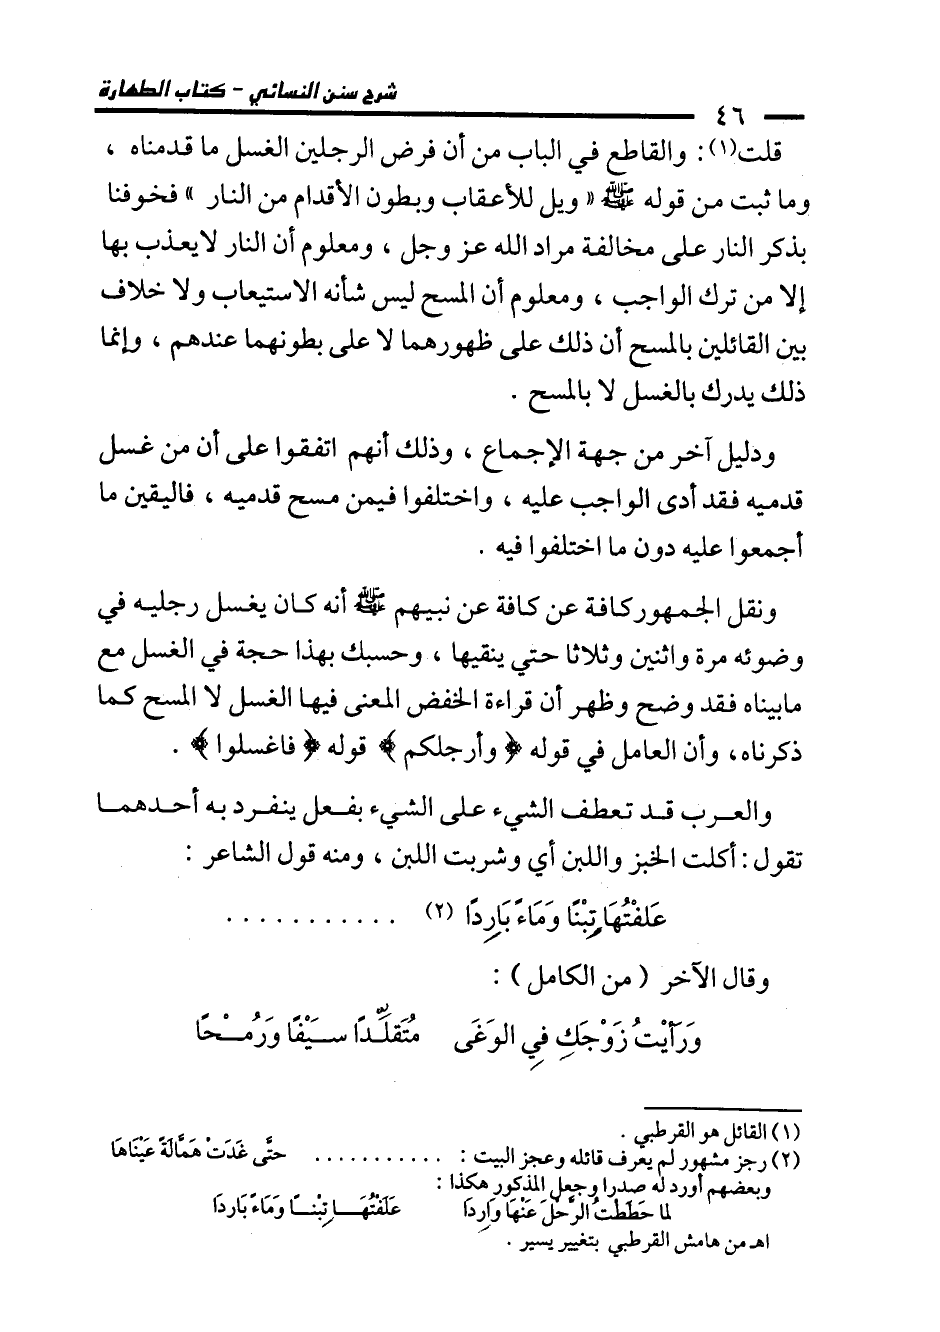 شرح سنن النسائي - كتاب الطهارة
٤٦
قلت(١): والقاطع في الباب من أن فرض الرجلين الغسل ما قدمناه ،
وما ثبت من قوله ﷺ « ويل للأعقاب وبطون الأقدام من النار » فخوفنا
بذكر النار على مخالفة مراد الله عز وجل ، ومعلوم أن النار لايعذب بها
إلا من ترك الواجب ، ومعلوم أن المسح ليس شأنه الاستيعاب ولا خلاف
بين القائلين بالمسح أن ذلك على ظهورهما لا على بطونهما عندهم ، وإنما
ذلك يدرك بالغسل لا بالمسح .
ودليل آخر من جهة الإجماع ، وذلك أنهم اتفقوا على أن من غسل
قدميه فقد أدى الواجب عليه ، واختلفوا فيمن مسح قدميه ، فاليقين ما
أجمعوا عليه دون ما اختلفوا فيه .
ونقل الجمهور كافة عن كافة عن نبيهم ﷺ أنه كان يغسل رجليه في
وضوئه مرة واثنين وثلاثا حتي ينقيها ، وحسبك بهذا حجة في الغسل مع
مابيناه فقد وضح وظهر أن قراءة الخفض المعنى فيها الغسل لا المسح كما
ذكرناه، وأن العامل في قوله ﴿ وأرجلكم ﴾ قوله ﴿ فاغسلوا ﴾ .
والعرب قد تعطف الشيء على الشيء بفعل ينفرد به أحدهما
تقول : أكلت الخبز واللبن أي وشربت اللبن ، ومنه قول الشاعر :
عَلَفْتُهَا تِبْنًا وَمَاءً بَارِدًا (٢) . . . . . . . . . . .
وقال الآخر ( من الكامل ) :
وَرَأَيْتُ زَوْجَكِ فِي الوَغَى مُتَقَلِّدًا سَيْفًا وَرُمْحًا
(١) القائل هو القرطبي .
(٢) رجز مشهور لم يعرف قائله وعجز البيت : . . . . . . . . . . . حتَّى غَدَتْ هَمَّالَةً عَيْنَاهَا
وبعضهم أورد له صدرا وجعل المذكور هكذا :
لما حَطَطْتُ الرَّحْلَ عَنْهَا وَارِدَا عَلَفْتُهَا تِبْنًا وَمَاءً بَارِدَا
اهـ من هامش القرطبي بتغيير يسير .